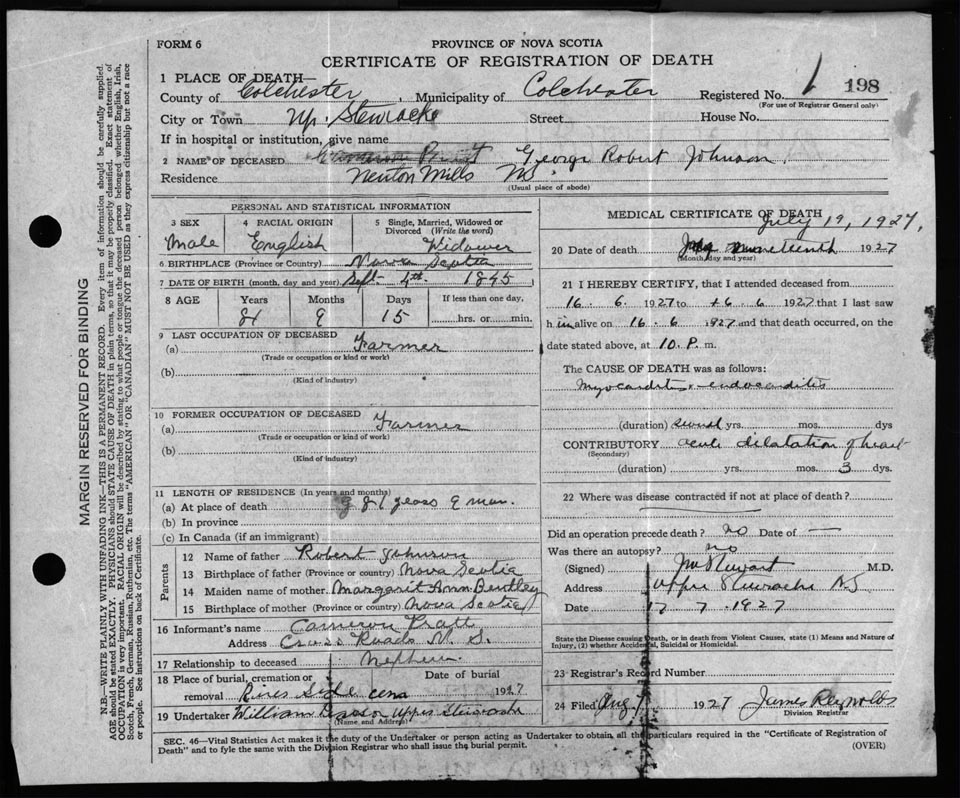 FORM 6
PROVINCE OF NOVA SCOTIA
CERTIFICATE OF REGISTRATION OF DEATH
1 PLACE OF DEATH—
County of Colchester, Municipality of Colchester Registered No. 1 198
(For use of Registrar General only)
City or Town Up. Stewiacke Street House No.
If in hospital or institution, give name
2 NAME OF DECEASED George Robert Johnson
Residence Newton Mills NS.
(Usual place of abode)
PERSONAL AND STATISTICAL INFORMATION
3 SEX Male
4 RACIAL ORIGIN English
5 Single, Married, Widowed or Divorced (Write the word) Widower
6 BIRTHPLACE (Province or Country) Nova Scotia
7 DATE OF BIRTH (month, day and year) Sept. 4th. 1845
8 AGE Years Months Days If less than one day,
81 9 15 hrs. or min.
9 LAST OCCUPATION OF DECEASED
(a) Farmer
(Trade or occupation or kind of work)
(b)
(Kind of industry)
10 FORMER OCCUPATION OF DECEASED
(a) Farmer
(Trade or occupation or kind of work)
(b)
(Kind of industry)
11 LENGTH OF RESIDENCE (In years and months)
(a) At place of death years 9 mon.
(b) In province
(c) In Canada (if an immigrant)
Parents
12 Name of father Robert Johnson
13 Birthplace of father (Province or country) Nova Scotia
14 Maiden name of mother Margarit Ann Bentley
15 Birthplace of mother (Province or country) Nova Scotia
16 Informant's name Cameron Pratt
Address Cross Roads N. S.
17 Relationship to deceased Nephew
18 Place of burial, cremation or Date of burial
removal River Side cem 1927
19 Undertaker William Upper Stewiacke
(Name and Address)
MEDICAL CERTIFICATE OF DEATH
July 19, 1927,
20 Date of death nineteenth 1927
(Month, day and year)
21 I HEREBY CERTIFY, that I attended deceased from
16. 6. 1927 to 16 6 1927 that I last saw
h im alive on 16. 6 1927 and that death occurred, on the
date stated above, at 10. P. m.
The CAUSE OF DEATH was as follows:
Myocarditis - endocarditis
(duration) several yrs. mos. dys
CONTRIBUTORY acute dilatation of heart
(Secondary)
(duration) yrs. mos. 3 dys.
22 Where was disease contracted if not at place of death?
Did an operation precede death? no Date of —
Was there an autopsy? no
(Signed) Stewart M.D.
Address Upper Stewiacke NS
Date 7. 1927
State the Disease causing Death, or in death from Violent Causes, state (1) Means and Nature of
Injury, (2) whether Accidental, Suicidal or Homicidal.
23 Registrar's Record Number
24 Filed Aug. 1927 James Reynolds
Division Registrar
SEC. 46—Vital Statistics Act makes it the duty of the Undertaker or person acting as Undertaker to obtain, all the particulars required in the "Certificate of Registration of
Death" and to fyle the same with the Division Registrar who shall issue the burial permit.
(OVER)
MARGIN RESERVED FOR BINDING
N.B.—WRITE PLAINLY WITH UNFADING INK—THIS IS A PERMANENT RECORD. Every item of information should be carefully supplied.
AGE should be stated EXACTLY. PHYSICIANS should STATE CAUSE OF DEATH in plain terms, so that it may be properly classified. Exact statement of
OCCUPATION is very important. RACIAL ORIGIN will be described by stating to what people or tongue the deceased person belonged whether English, Irish,
Scotch, French, German, Russian, Ruthenian, etc. The terms "AMERICAN" OR "CANADIAN" MUST NOT BE USED as they express citizenship but not a race
or people. See instructions on back of Certificate.